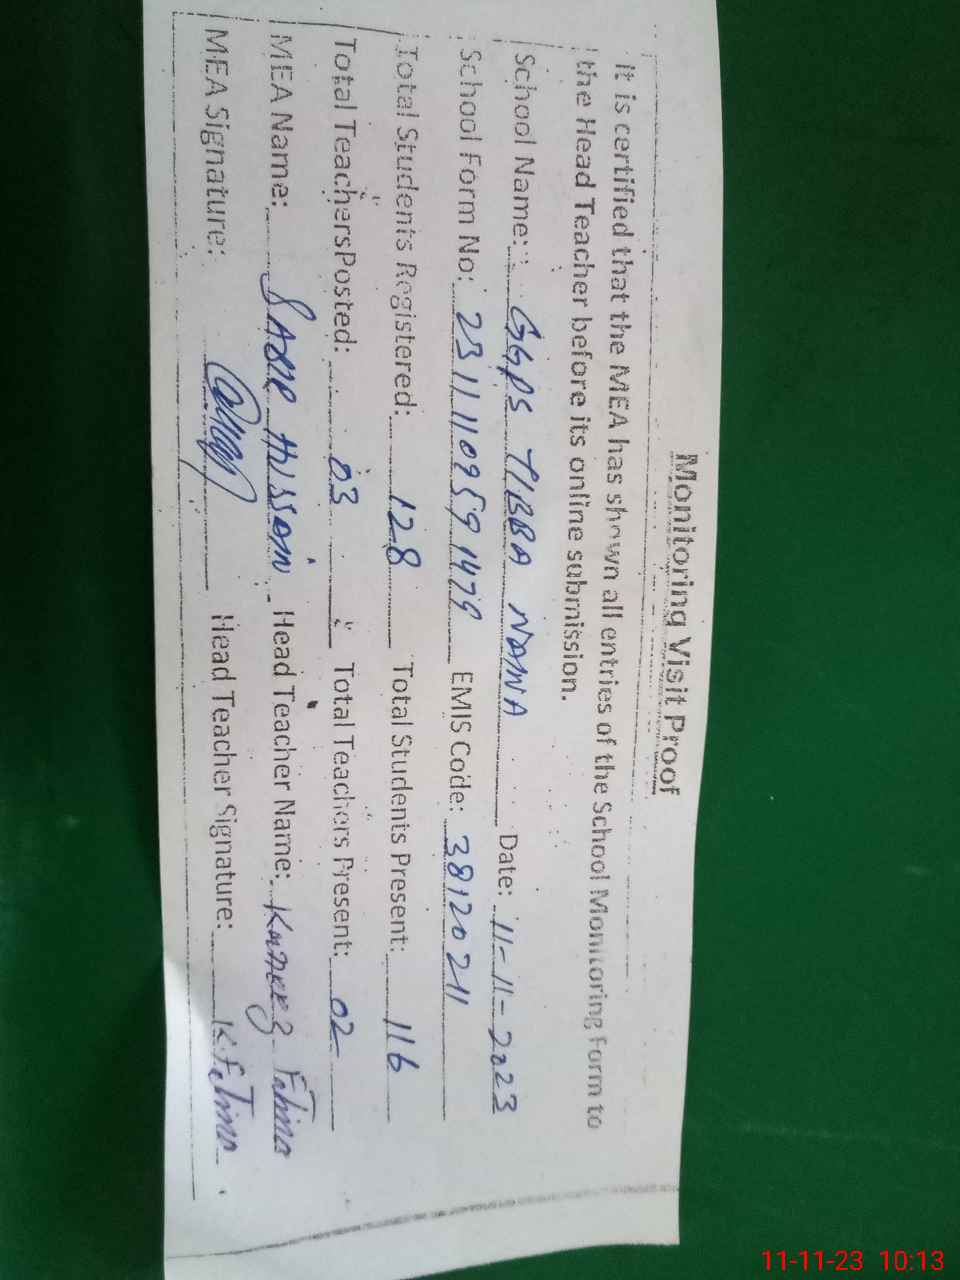 Monitoring Visit Proof
It is certified that the MEA has shown all entries of the School Monitoring Form to
the Head Teacher before its online submission.
School Name: GGPS TIBBA NAWNA Date: 11-11-2023
School Form No: 23111109591479 EMIS Code: 38120211
Total Students Registered: 128 Total Students Present: 116
Total Teachers Posted: 03 Total Teachers Present: 02
MEA Name: SABIR HUSSAIN Head Teacher Name: Kaneez Fatima
MEA Signature: Head Teacher Signature: K.Fatima
11-11-23 10:13